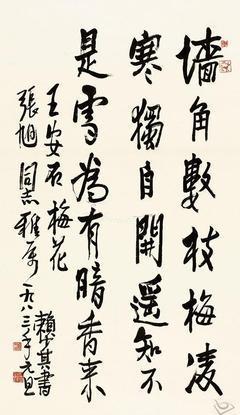 墙角數枝梅凌
寒獨自開遥知不
是雪為有暗香来
王安石梅花
張旭同志雅属 一九八三年元旦
賴少其書